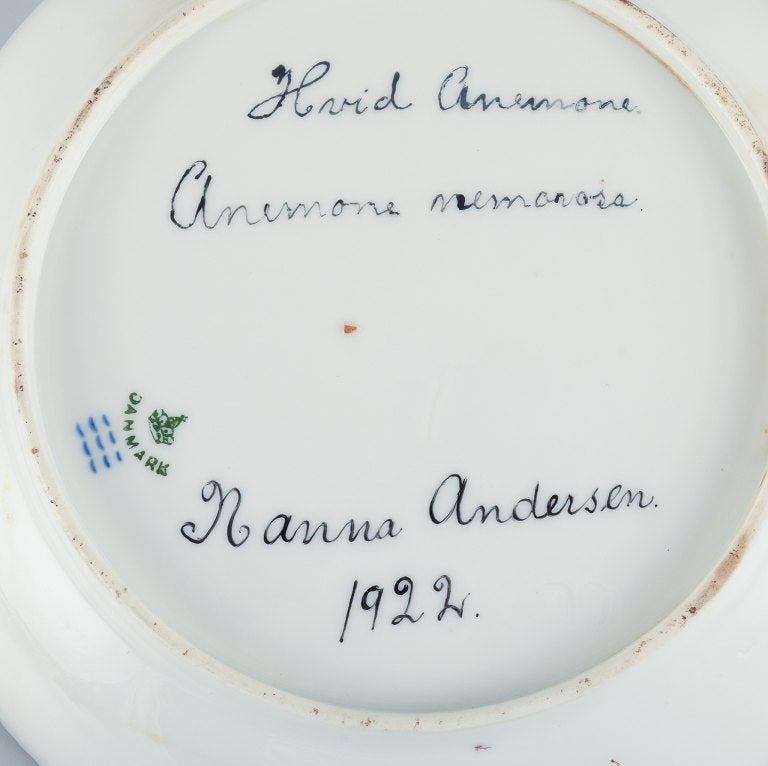 Hvid Anemone.
Anemone nemorosa.
DANMARK
Nanna Andersen.
1922.